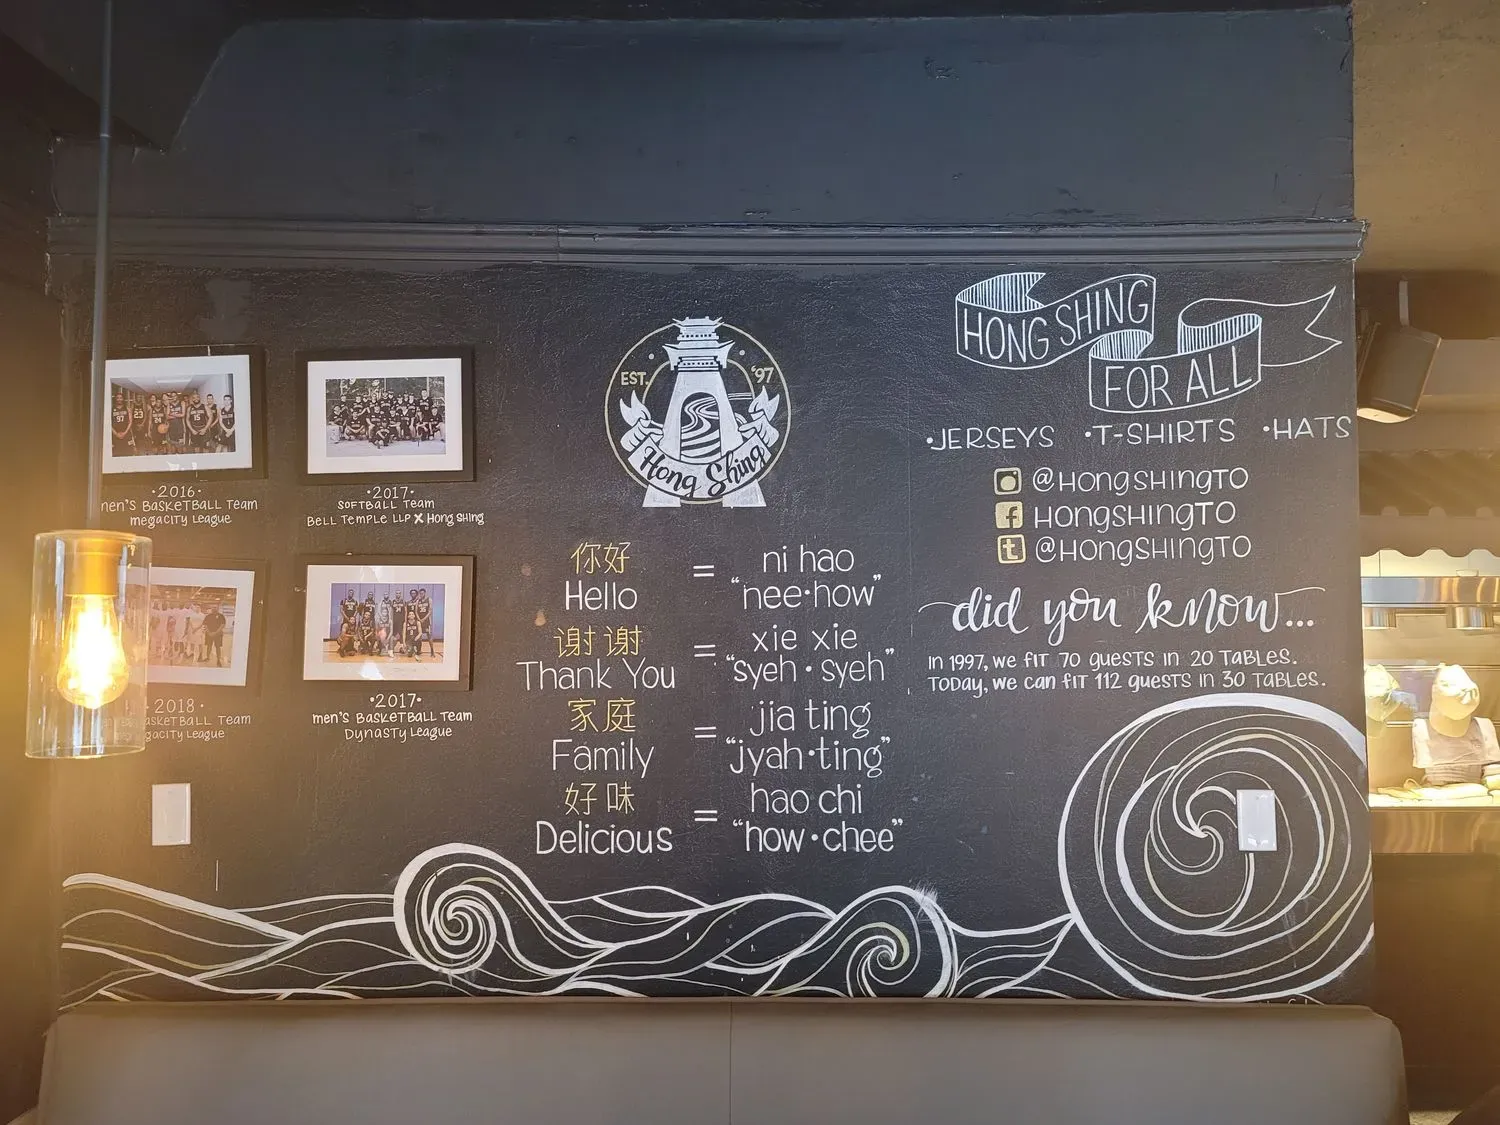 ·2016·
men's BASKETBALL Team
megacity League
·2017·
SOFTBALL Team
BELL TEMPLE LLP X Hong SHing
2018
BASKETBALL Team
League
·2017·
men's BASKETBALL Team
DYNASTY League
EST. '97
Hong Shing
你好 = ni hao
Hello "nee·how"
谢谢 = xie xie
Thank You "syeh·syeh"
家庭 = jia ting
Family "jyah·ting"
好味 = hao chi
Delicious "how·chee"
HONG SHING
FOR ALL
·JERSEYS ·T-SHIRTS ·HATS
@HongSHingTO
f HongSHingTO
t @HongSHingTO
did you know...
In 1997, we FIT 70 guests in 20 TABLES.
TODAY, we can FIT 112 guests in 30 TABLES.